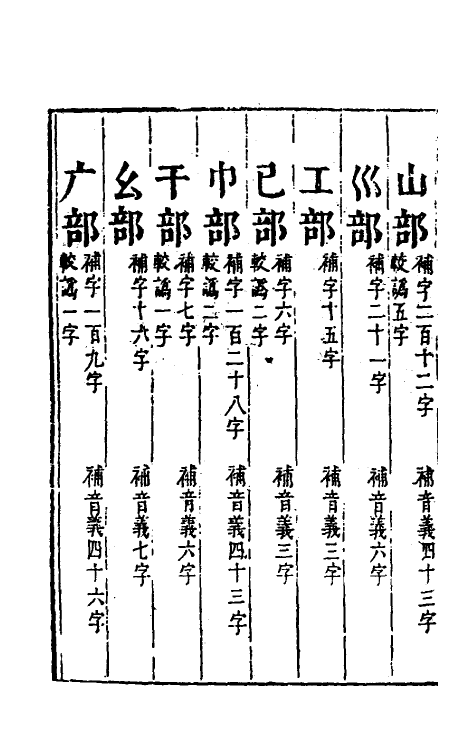 山部 補字二百十二字 補音義四十三字
較譌五字
巛部 補字二十一字 補音義六字
工部 補字十五字 補音義三字
已部 補字六字 補音義三字
較譌二字
巾部 補字一百二十八字 補音義四十三字
較譌二字
干部 補字七字 補音義六字
較譌一字
幺部 補字十六字 補音義七字
广部 補字一百九字 補音義四十六字
較譌一字